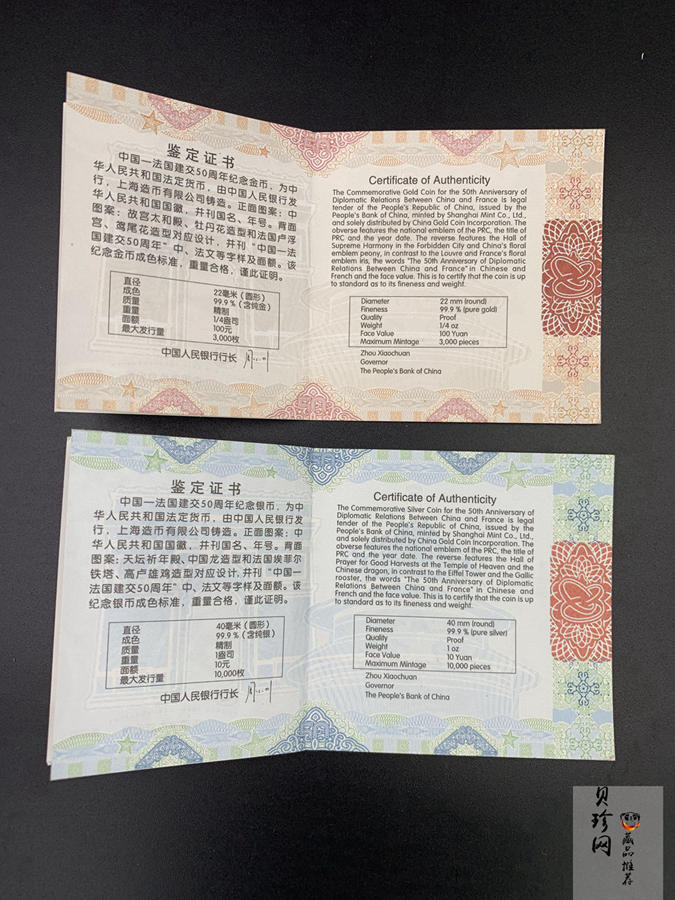 鉴定证书
中国一法国建交50周年纪念金币，为中
华人民共和国法定货币，由中国人民银行发
行，上海造币有限公司铸造。正面图案：中
华人民共和国国徽，并刊国名、年号。背面
图案：故宫太和殿、牡丹花造型和法国卢浮
宫、鸢尾花造型对应设计，并刊“中国一法
国建交50周年”中、法文等字样及面额。该
纪念金币成色标准，重量合格，谨此证明。
直径 22毫米（圆形）
成色 99.9％（含纯金）
质量 精制
重量 1/4盎司
面额 100元
最大发行量 3,000枚
中国人民银行行长
Certificate of Authenticity
The Commemorative Gold Coin for the 50th Anniversary of
Diplomatic Relations Between China and France is legal
tender of the People's Republic of China, issued by the
People's Bank of China, minted by Shanghai Mint Co., Ltd.,
and solely distributed by China Gold Coin Incorporation. The
obverse features the national emblem of the PRC, the title of
PRC and the year date. The reverse features the Hall of
Supreme Harmony in the Forbidden City and China's floral
emblem peony, in contrast to the Louvre and France's floral
emblem iris, the words "The 50th Anniversary of Diplomatic
Relations Between China and France" in Chinese and
French and the face value. This is to certify that the coin is up
to standard as to its fineness and weight.
Diameter 22 mm (round)
Fineness 99.9 % (pure gold)
Quality Proof
Weight 1/4 oz
Face Value 100 Yuan
Maximum Mintage 3,000 pieces
Zhou Xiaochuan
Governor
The People's Bank of China
鉴定证书
中国一法国建交50周年纪念银币，为中
华人民共和国法定货币，由中国人民银行发
行，上海造币有限公司铸造。正面图案：中
华人民共和国国徽，并刊国名、年号。背面
图案：天坛祈年殿、中国龙造型和法国埃菲尔
铁塔、高卢雄鸡造型对应设计，并刊“中国一
法国建交50周年”中、法文等字样及面额。该
纪念银币成色标准，重量合格，谨此证明。
直径 40毫米（圆形）
成色 99.9％（含纯银）
质量 精制
重量 1盎司
面额 10元
最大发行量 10,000枚
中国人民银行行长
Certificate of Authenticity
The Commemorative Silver Coin for the 50th Anniversary of
Diplomatic Relations Between China and France is legal
tender of the People's Republic of China, issued by the
People's Bank of China, minted by Shanghai Mint Co., Ltd.,
and solely distributed by China Gold Coin Incorporation. The
obverse features the national emblem of the PRC, the title of
PRC and the year date. The reverse features the Hall of
Prayer for Good Harvests at the Temple of Heaven and the
Chinese dragon, in contrast to the Eiffel Tower and the Gallic
rooster, the words "The 50th Anniversary of Diplomatic
Relations Between China and France" in Chinese and
French and the face value. This is to certify that the coin is up
to standard as to its fineness and weight.
Diameter 40 mm (round)
Fineness 99.9 % (pure silver)
Quality Proof
Weight 1 oz
Face Value 10 Yuan
Maximum Mintage 10,000 pieces
Zhou Xiaochuan
Governor
The People's Bank of China
贝珍网
藏品推荐